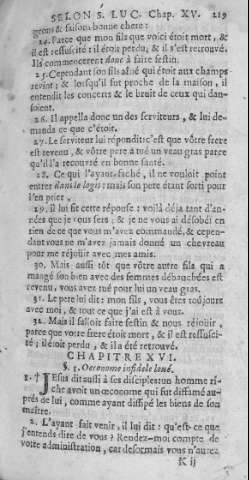 SELON S. LUC. Chap. XV. 219
grens & faison bonne chere:
24. Parce que mon fils que voici étoit mort, &
il est ressuscité: il étoit perdu, & il s'est retrouvé.
Ils commencerent donc à faire festin.
25. Cependant son fils aîné qui étoit aux champs
revint; & lorsqu'il fut proche de la maison, il
entendit les concerts & le bruit de ceux qui dan-
soient.
26. Il appella donc un des serviteurs, & lui de-
manda ce que c'étoit.
27. Le serviteur lui répondit: c'est que vôtre frere
est revenu, & vôtre pere a tué un veau gras parce
qu'il l'a recouvré en bonne santé.
28. Ce qui l'ayant fâché, il ne vouloit point
entrer dans le logis: mais son pere étant sorti pour
l'en prier,
29. il lui fit cette réponse: voilà deja tant d'an-
nées que je vous sers, & je ne vous ai désobéi en
rien de ce que vous m'avez commandé, & cepen-
dant vous ne m'avez jamais donné un chevreau
pour me réjouir avec mes amis.
30. Mais aussi tôt que vôtre autre fils qui a
mangé son bien avec des femmes débauchées est
revenu, vous avez tué pour lui un veau gras.
31. Le pere lui dit: mon fils, vous êtes toujours
avec moi, & tout ce que j'ai est à vous.
32. Mais il falloit faire festin & nous réjouir,
parce que votre frere étoit mort, & il est ressusci-
té; il étoit perdu, & il a été retrouvé.
CHAPITRE XVI.
§. 1. Oeconome infidele loué.
1. † JEsus dit aussi à ses disciples: un homme ri-
che avoit un œconome qui fut diffamé au-
près de lui, comme ayant dissipé les biens de son
maître.
2. L'ayant fait venir, il lui dit: qu'est-ce que
j'entends dire de vous? Rendez-moi compte de
votre administration, car desormais vous n'aurez
K ij